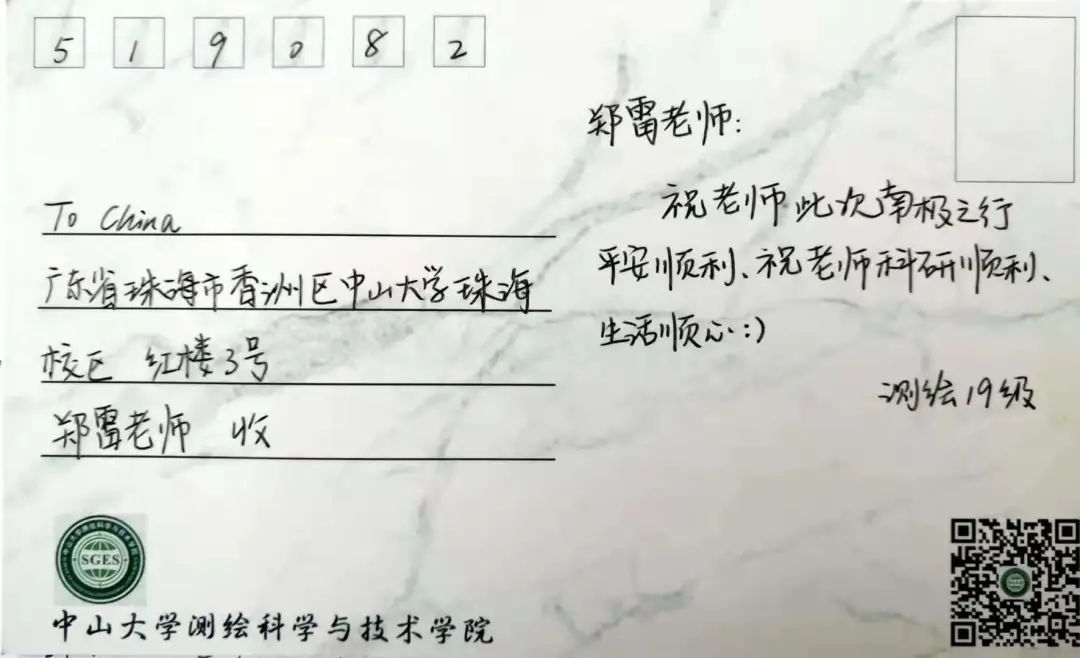 5 1 9 0 8 2
To China
广东省珠海市香洲区中山大学珠海
校区 红楼3号
郑雷老师 收
郑雷老师:
祝老师此次南极之行
平安顺利、祝老师科研顺利、
生活顺心:)
测绘19级
SGES
中山大学测绘科学与技术学院